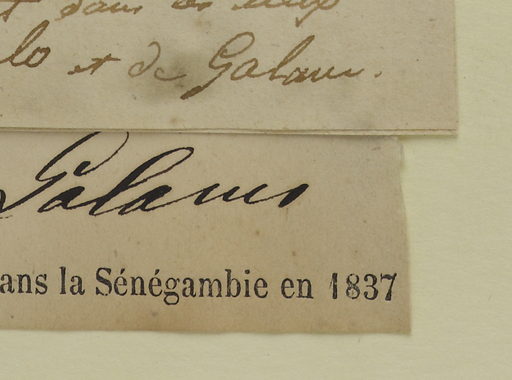 dans les
lo et de Galam.
Galam
ans la Sénégambie en 1837